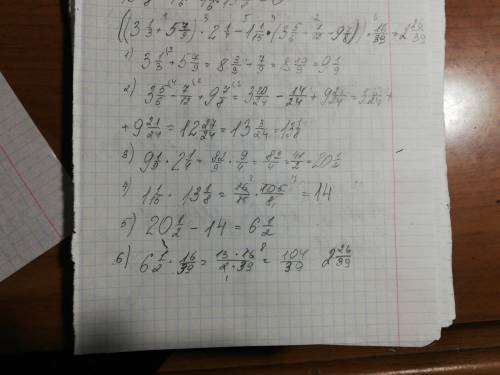 ((3 1/3 + 5 7/9) · 2 1/4 - 1 1/15 · (3 5/6 - 7/12 + 9 7/8)) · 16/39 = 2 26/39
1) 3 1/3 + 5 7/9 = 8 3/9 + 7/9 = 8 10/9 = 9 1/9
2) 3 5/6 - 7/12 + 9 7/8 = 3 20/24 - 14/24 + 9 21/24 = 3 6/24 +
+ 9 21/24 = 12 27/24 = 13 3/24 = 13 1/8
3) 9 1/9 · 2 1/4 = 82/9 · 9/4 = 82/4 = 41/2 = 20 1/2
4) 1 1/15 · 13 1/8 = 16/15 · 105/8 = 14
5) 20 1/2 - 14 = 6 1/2
6) 6 1/2 · 16/39 = 13 · 16/2 · 39 = 104/39 2 26/39